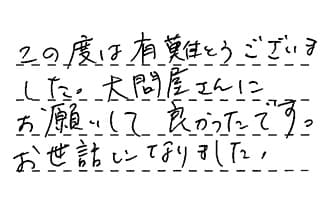 この度は有難とうございま
した。大問屋さんに
お願いして良かったです。
お世話になりました。